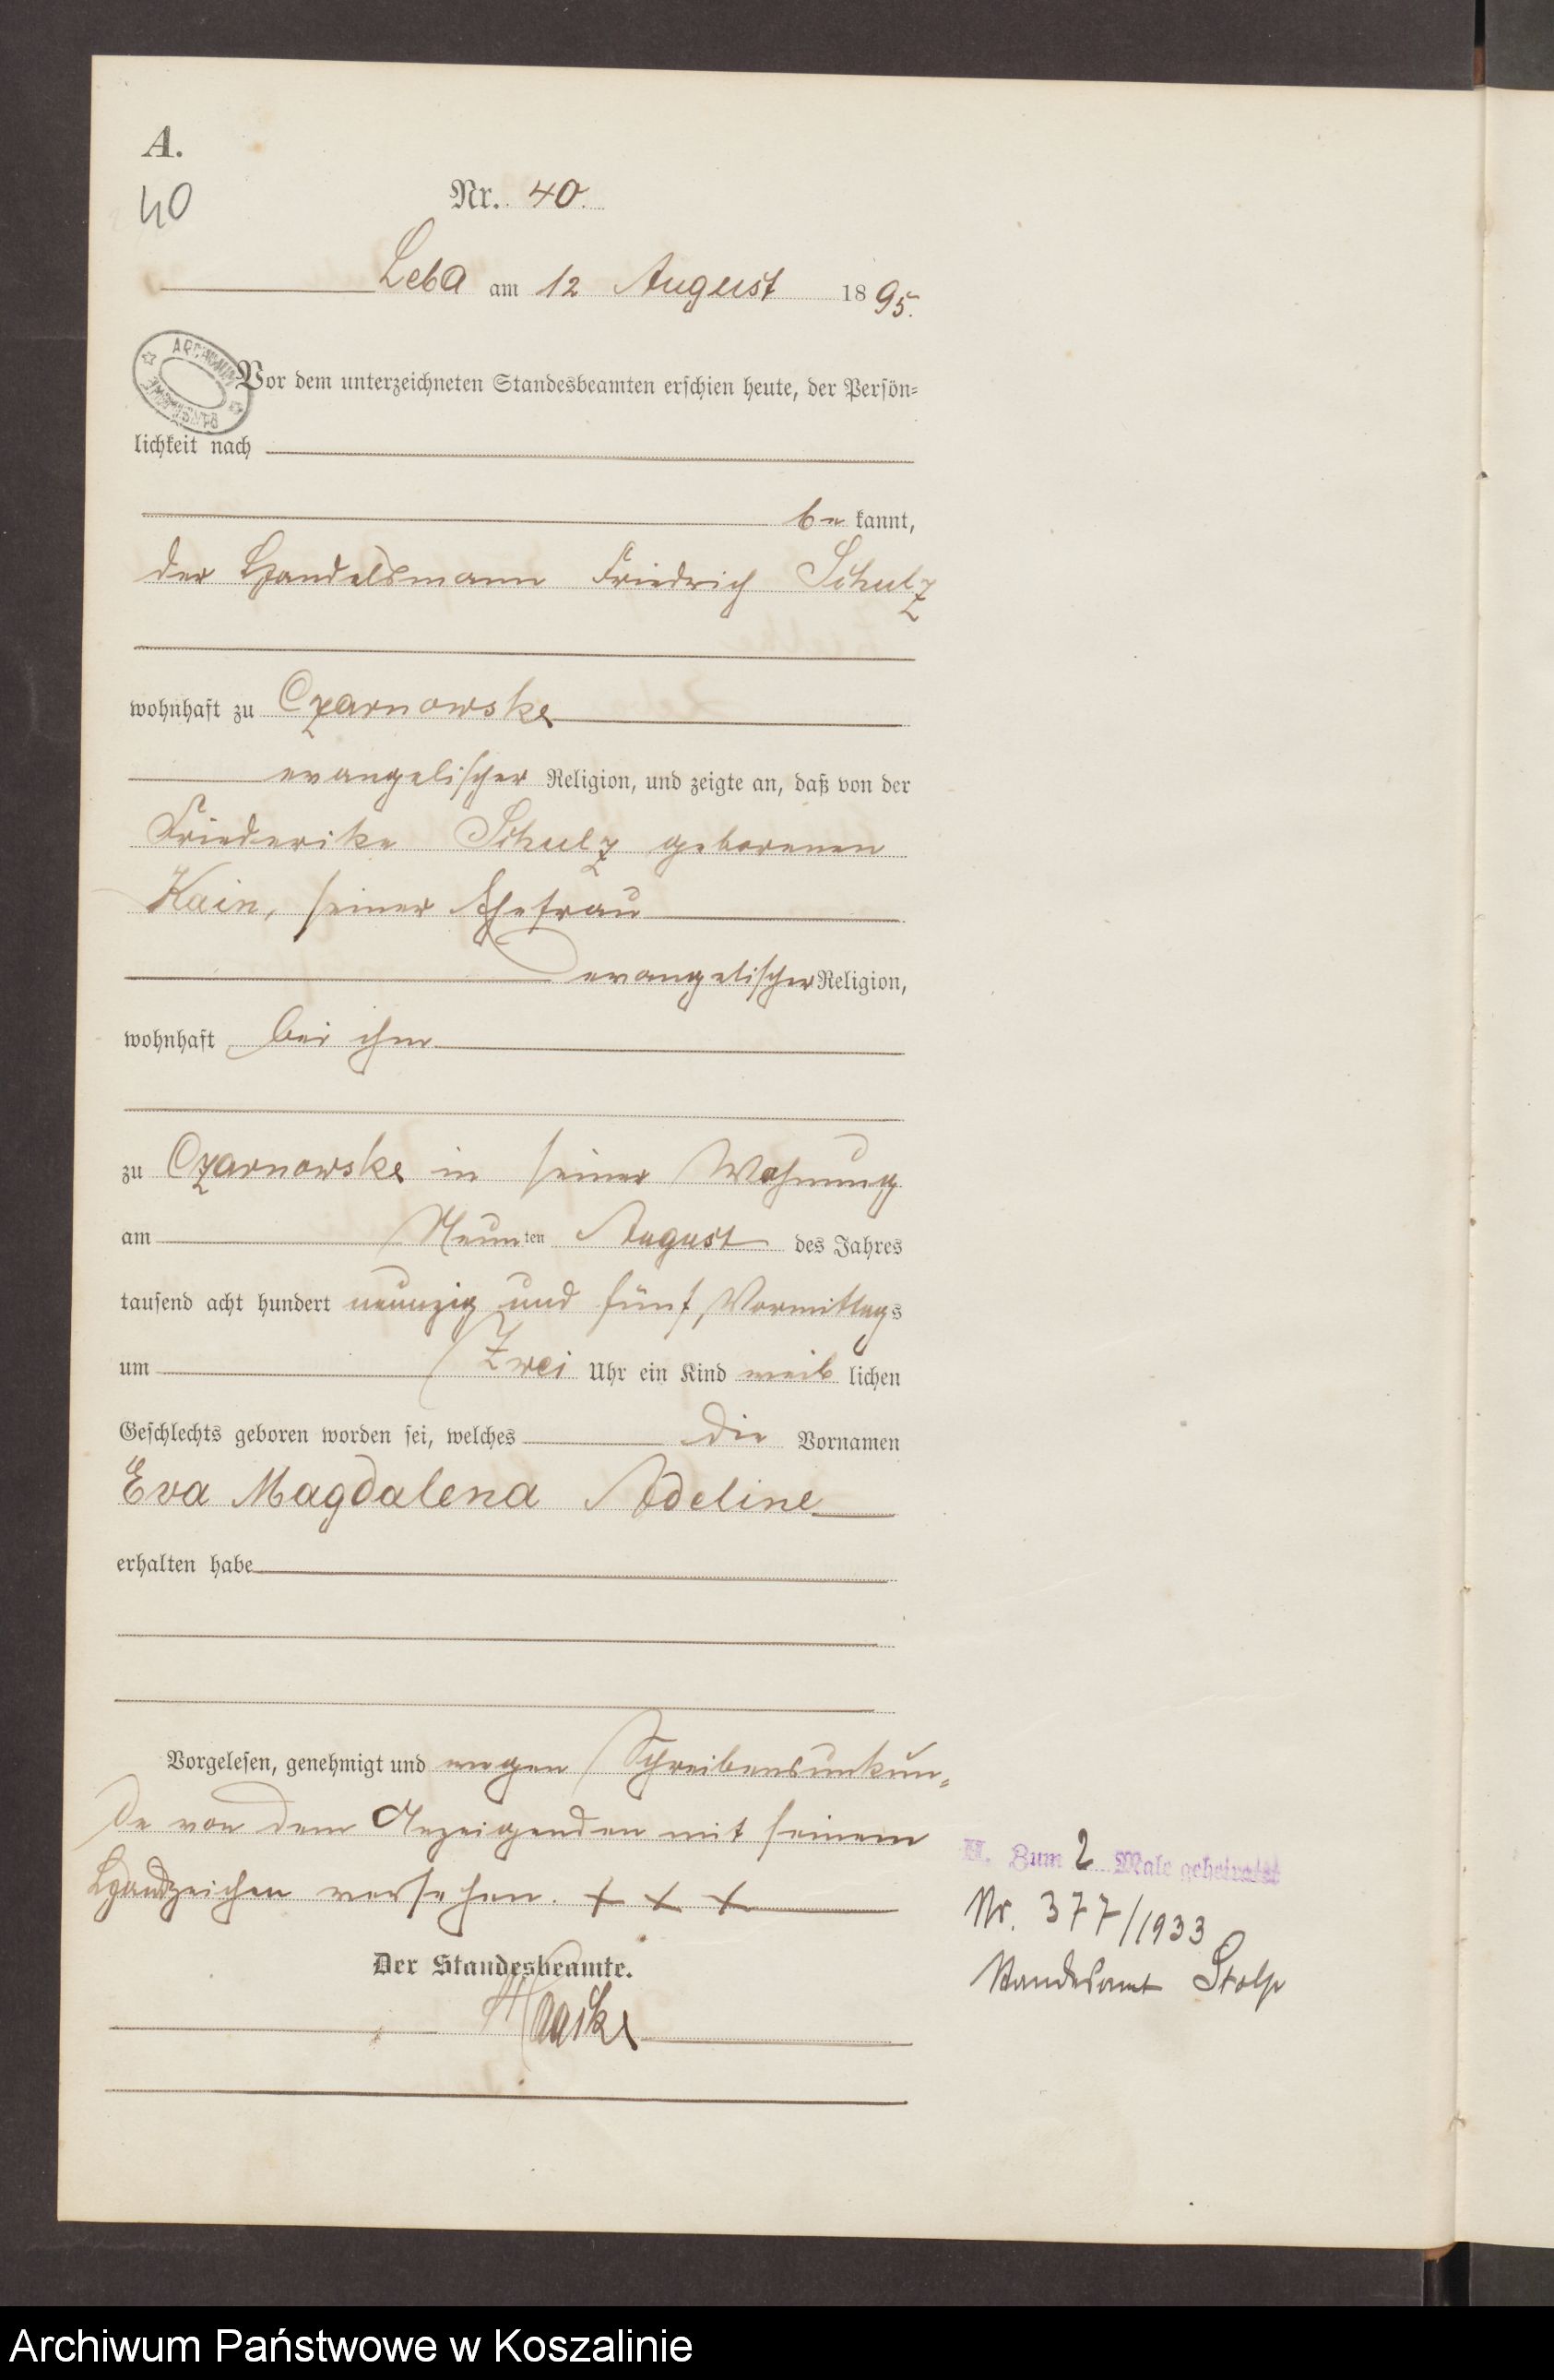 A.
40
Nr. 40.
Leba am 12 August 1895.
ARCHIWUM
Vor dem unterzeichneten Standesbeamten erschien heute, der Persön=
lichkeit nach
be kannt,
der Handelsmann Friedrich Schulz
wohnhaft zu Czarnowske
evangelischer Religion, und zeigte an, daß von der
Friederike Schulz geborenen
Kain, seiner Ehefrau
evangelischer Religion,
wohnhaft bei ihm
zu Czarnowske in seiner Wohnung
am Neunten August des Jahres
tausend acht hundert neunzig und fünf, Vormittags
um Zwei Uhr ein Kind weiblichen
Geschlechts geboren worden sei, welches die Vornamen
Eva Magdalena Adeline
erhalten habe
Vorgelesen, genehmigt und wegen Schreibensunkun=
de von dem Anzeigenden mit seinem
Handzeichen versehen. + + +
Der Standesbeamte.
Zum 2 Male geheiratet
Nr. 377/1933
Standesamt Stolp
Archiwum Państwowe w Koszalinie